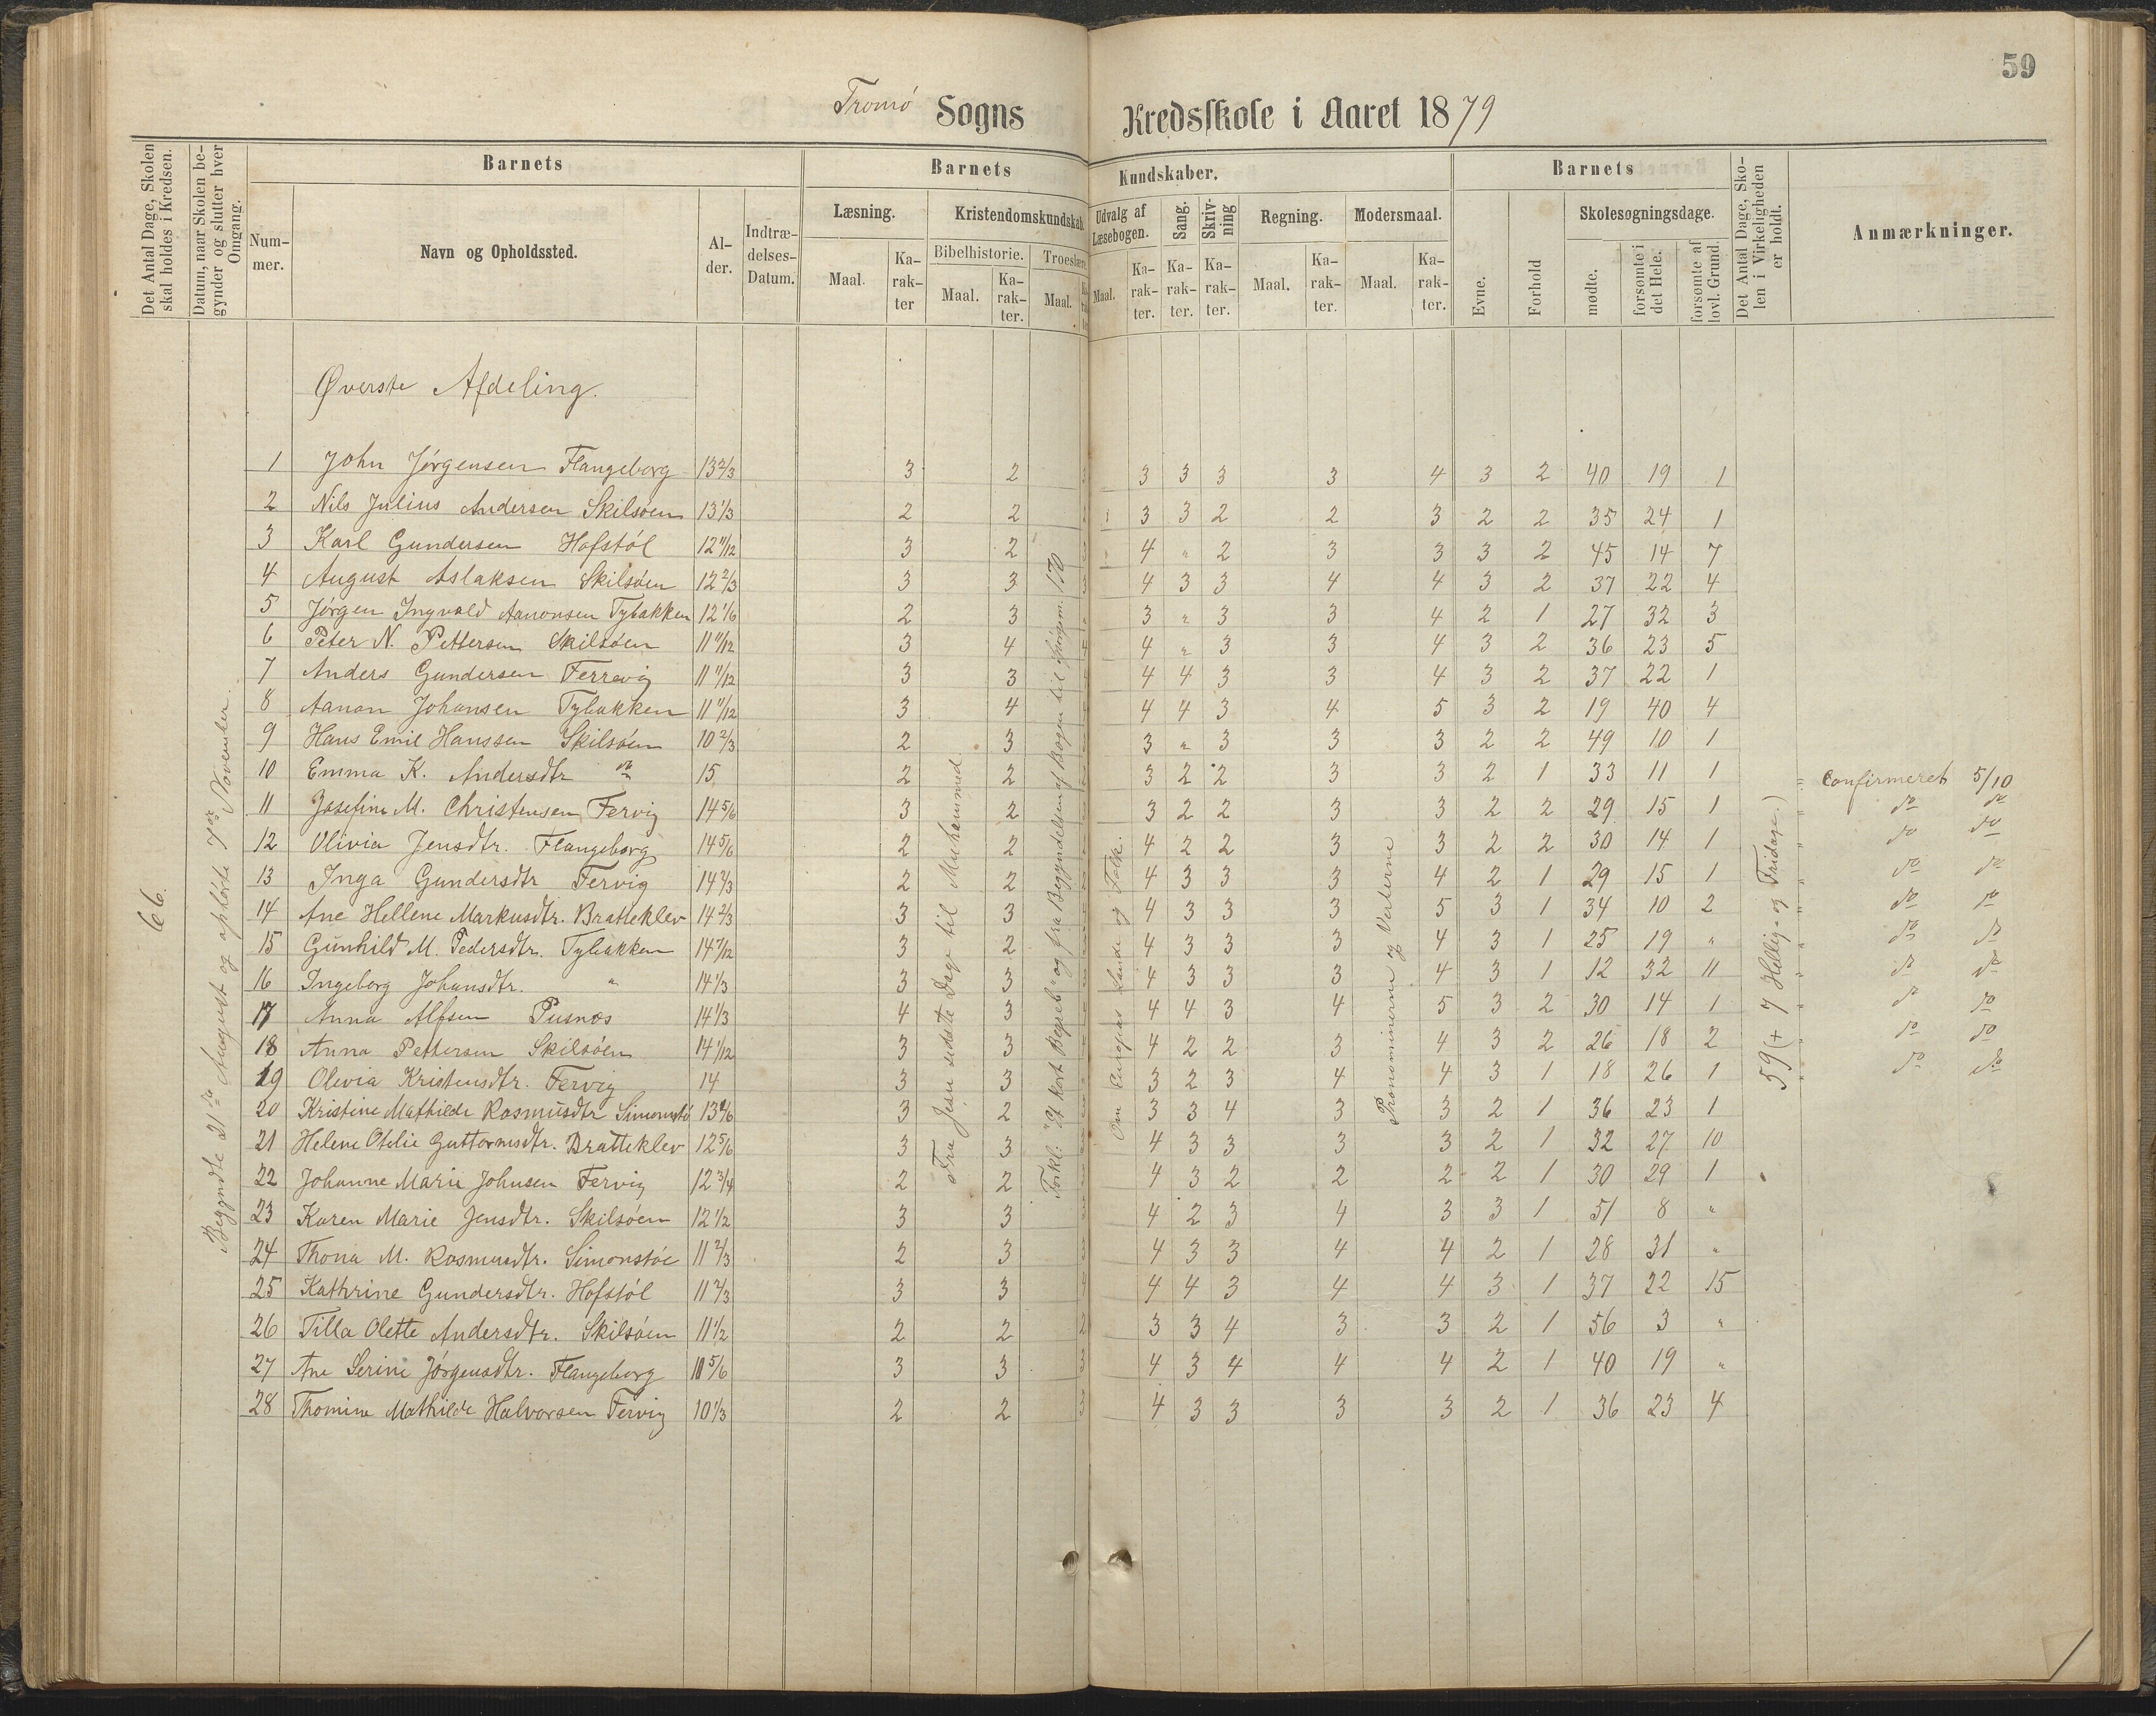 59
Tromö Sogns Kredsskole i Aaret 1879
Det Antal Dage, Skolen skal holdes i Kredsen.
Datum, naar Skolen begynder og slutter hver Omgang.
Barnets
Nummer.
Navn og Opholdssted.
Alder.
Indtrædelses-Datum.
Barnets Kundskaber.
Læsning.
Maal.
Karakter
Kristendomskundskab.
Bibelhistorie.
Maal.
Karakter.
Troeslære.
Maal.
Udvalg af Læsebogen.
Maal.
Karakter.
Sang.
Karakter.
Skrivning
Karakter.
Regning.
Maal.
Karakter.
Modersmaal.
Maal.
Karakter.
Barnets
Evne.
Forhold
Skolesøgningsdage.
mødte.
forsømte i det Hele.
forsømte af lovl. Grund.
Det Antal Dage, Skolen i Virkeligheden er holdt.
Anmærkninger.
66.
Begyndte 21de August og ophørte 7de November.
Øverste Afdeling.
Fra Jesu sidste Dage til Muhammed
Forkl: "Et kort Begreb" og fra Begyndelsen af Bogen til Spörgsm. 170
Om Europas Lande og Folk.
Pronominerne og Verberne
59 (+ 7 Hellig- og Fridage.)
1 John Jørgensen Flangeborg 13 2/3 3 2 3 3 3 3 3 4 3 2 40 19 1
2 Nils Julius Andersen Skilsøen 13 1/3 2 2 3 3 2 2 3 2 2 35 24 1
3 Karl Gundersen Hofstöl 12 11/12 3 2 4 " 2 3 3 3 2 45 14 7
4 August Aslaksen Skilsøen 12 2/3 3 3 3 4 3 3 4 4 3 2 37 22 4
5 Jørgen Ingvald Aanonsen Tybakken 12 1/6 2 3 3 " 3 3 4 2 1 27 32 3
6 Peter N. Pettersen Skilsøen 11 11/12 3 4 4 4 " 3 3 4 3 2 36 23 5
7 Anders Gundersen Ferrevig 11 11/12 3 3 4 4 3 3 4 3 2 37 22 1
8 Aanon Johansen Tybakken 11 11/12 3 4 4 4 3 4 5 3 2 19 40 4
9 Hans Emil Hanssen Skilsøen 10 2/3 2 3 3 " 3 3 3 2 2 49 10 1
10 Emma K. Andersdtr do 15 2 2 3 2 2 3 3 2 1 33 11 1 Confirmeret 5/10
11 Josefine M. Christensen Fervig 14 5/6 3 2 3 2 2 3 3 2 2 29 15 1 do do
12 Olivia Jensdtr. Flangeborg 14 5/6 2 2 4 2 2 3 3 2 2 30 14 1 do do
13 Inga Gundersdtr Fervig 14 2/3 2 2 4 3 3 3 4 2 1 29 15 1 do do
14 Ane Hellene Markusdtr. Bratteklev 14 2/3 3 3 4 3 3 3 5 3 1 34 10 2 do do
15 Gunhild M. Pedersdtr. Tybakken 14 7/12 3 2 4 3 3 3 4 3 1 25 19 " do do
16 Ingeborg Johansdtr. " 14 1/3 3 3 4 3 3 3 4 3 1 12 32 11 do do
17 Anna Alfsen Pusnes 14 1/3 4 3 4 4 3 4 5 3 2 30 14 1 do do
18 Anna Pettersen Skilsøen 14 1/12 3 3 4 2 2 3 4 3 2 26 18 2 do do
19 Olevia Kristensdtr. Fervig 14 3 3 3 2 3 4 4 3 1 18 26 1 do do
20 Kristine Mathilde Rasmusdtr Simonstö 13 1/6 3 2 3 3 4 3 3 2 1 36 23 1
21 Helene Otelie Guttormsdtr. Bratteklev 12 5/6 3 3 4 3 3 3 3 2 1 32 27 10
22 Johanne Marie Johnsen Fervig 12 3/4 2 2 4 3 2 2 2 2 1 30 29 1
23 Karen Marie Jensdtr. Skilsøen 12 1/2 3 3 4 2 3 4 3 3 1 51 8 "
24 Thona M. Rasmusdtr. Simonstöe 11 2/3 2 3 3 4 3 3 4 4 2 1 28 31 "
25 Kathrine Gundersdtr. Hofstöl 11 2/3 3 3 4 4 4 3 4 4 3 1 37 22 15
26 Tilla Olette Andersdtr. Skilsøen 11 1/2 2 2 2 3 3 4 3 3 2 1 56 3 "
27 Ane Serine Jørgensdtr. Flangeborg 10 5/6 3 3 3 4 3 4 4 4 2 1 40 19 "
28 Thomine Mathilde Halvorsen Fervig 10 1/3 2 2 3 4 3 3 3 3 2 1 36 23 4